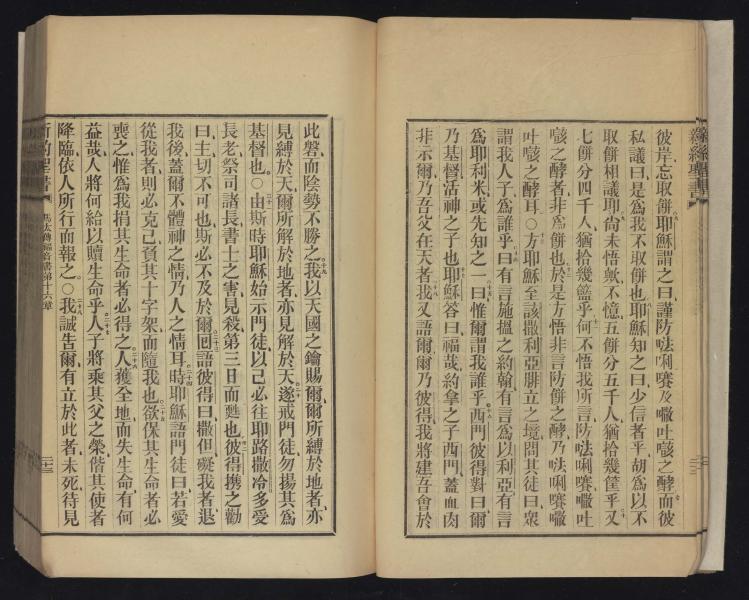 新約聖書
彼岸忘取餅耶穌謂之曰謹防唎及吐之酵而彼
私議曰是為我不取餅也耶穌知之曰少信者乎胡為以不
取餅相議耶尚未悟歟不憶五餅分五千人猶拾幾筐乎又
七餅分四千人猶拾幾籃乎何不悟我所言防唎吐
之酵者非為餅也於是方悟非言防餅之酵乃唎
吐之酵耳○方耶穌至該撒利亞腓立之境問其徒曰眾
謂我人子為誰乎曰有言施搵之約翰有言為以利亞有言
為耶利米或先知之一曰惟爾謂我誰乎西門彼得對曰爾
乃基督活神之子也耶穌答曰福哉約拿之子西門蓋血肉
非示爾乃吾父在天者我又語爾爾乃彼得我將建吾會於
此磐而陰勢不勝之我以天國之鑰賜爾爾所縛於地者亦
見縛於天爾所解於地者亦見解於天遂戒門徒勿揚其為
基督也○由斯時耶穌始示門徒以己必往耶路撒冷多受
長老祭司諸長書士之害見殺第三日而甦也彼得攜之勸
曰主切不可也斯必不及於爾回語彼得曰撒但礙我者退
我後蓋爾不體神之情乃人之情耳時耶穌語門徒曰若愛
從我者則必克己負其十字架而隨我也欲保其生命者必
喪之惟為我捐其生命者必得之人獲全地而失生命有何
益哉人將何給以贖生命乎人子將乘其父之榮偕其使者
降臨依人所行而報之○我誠告爾有立於此者未死待見
新約聖書 馬太傳福音書第十六章 二十三